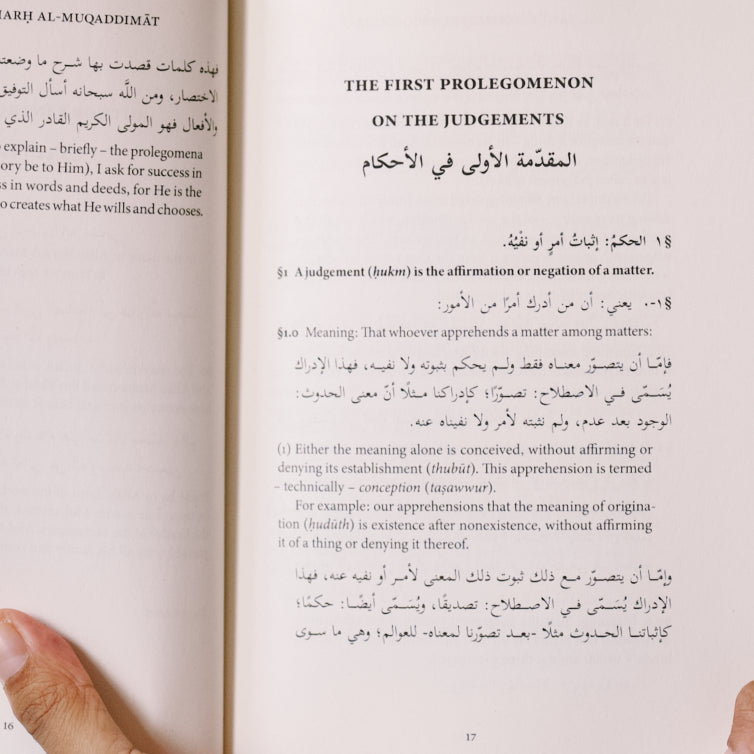 ARḤ AL-MUQADDIMĀT
فهذه كلمات قصدت بها شرح ما وضعته
الاختصار، ومن اللَّه سبحانه أسأل التوفيق
والأفعال فهو المولى الكريم القادر الذي
explain – briefly – the prolegomena
ory be to Him), I ask for success in
s in words and deeds, for He is the
o creates what He wills and chooses.
16
THE FIRST PROLEGOMENON
ON THE JUDGEMENTS
المقدّمة الأولى في الأحكام
§١ الحكمُ: إثباتُ أمرٍ أو نفْيُهُ.
§1 A judgement (ḥukm) is the affirmation or negation of a matter.
§١-٠ يعني: أن من أدرك أمرًا من الأمور:
§1.0 Meaning: That whoever apprehends a matter among matters:
فإمّا أن يتصوّر معناه فقط ولم يحكم بثبوته ولا نفيه، فهذا الإدراك
يُسَمّى في الاصطلاح: تصوّرًا؛ كإدراكنا مثلًا أنّ معنى الحدوث:
الوجود بعد عدم، ولم نثبته لأمر ولا نفيناه عنه.
(1) Either the meaning alone is conceived, without affirming or
denying its establishment (thubūt). This apprehension is termed
– technically – conception (taṣawwur).
For example: our apprehensions that the meaning of origina-
tion (ḥudūth) is existence after nonexistence, without affirming
it of a thing or denying it thereof.
وإمّا أن يتصوّر مع ذلك ثبوت ذلك المعنى لأمر أو نفيه عنه، فهذا
الإدراك يُسَمّى في الاصطلاح: تصديقًا، ويُسَمّى أيضًا: حكمًا؛
كإثباتنا الحدوث مثلًا -بعد تصوّرنا لمعناه- للعوالم؛ وهي ما سوى
17